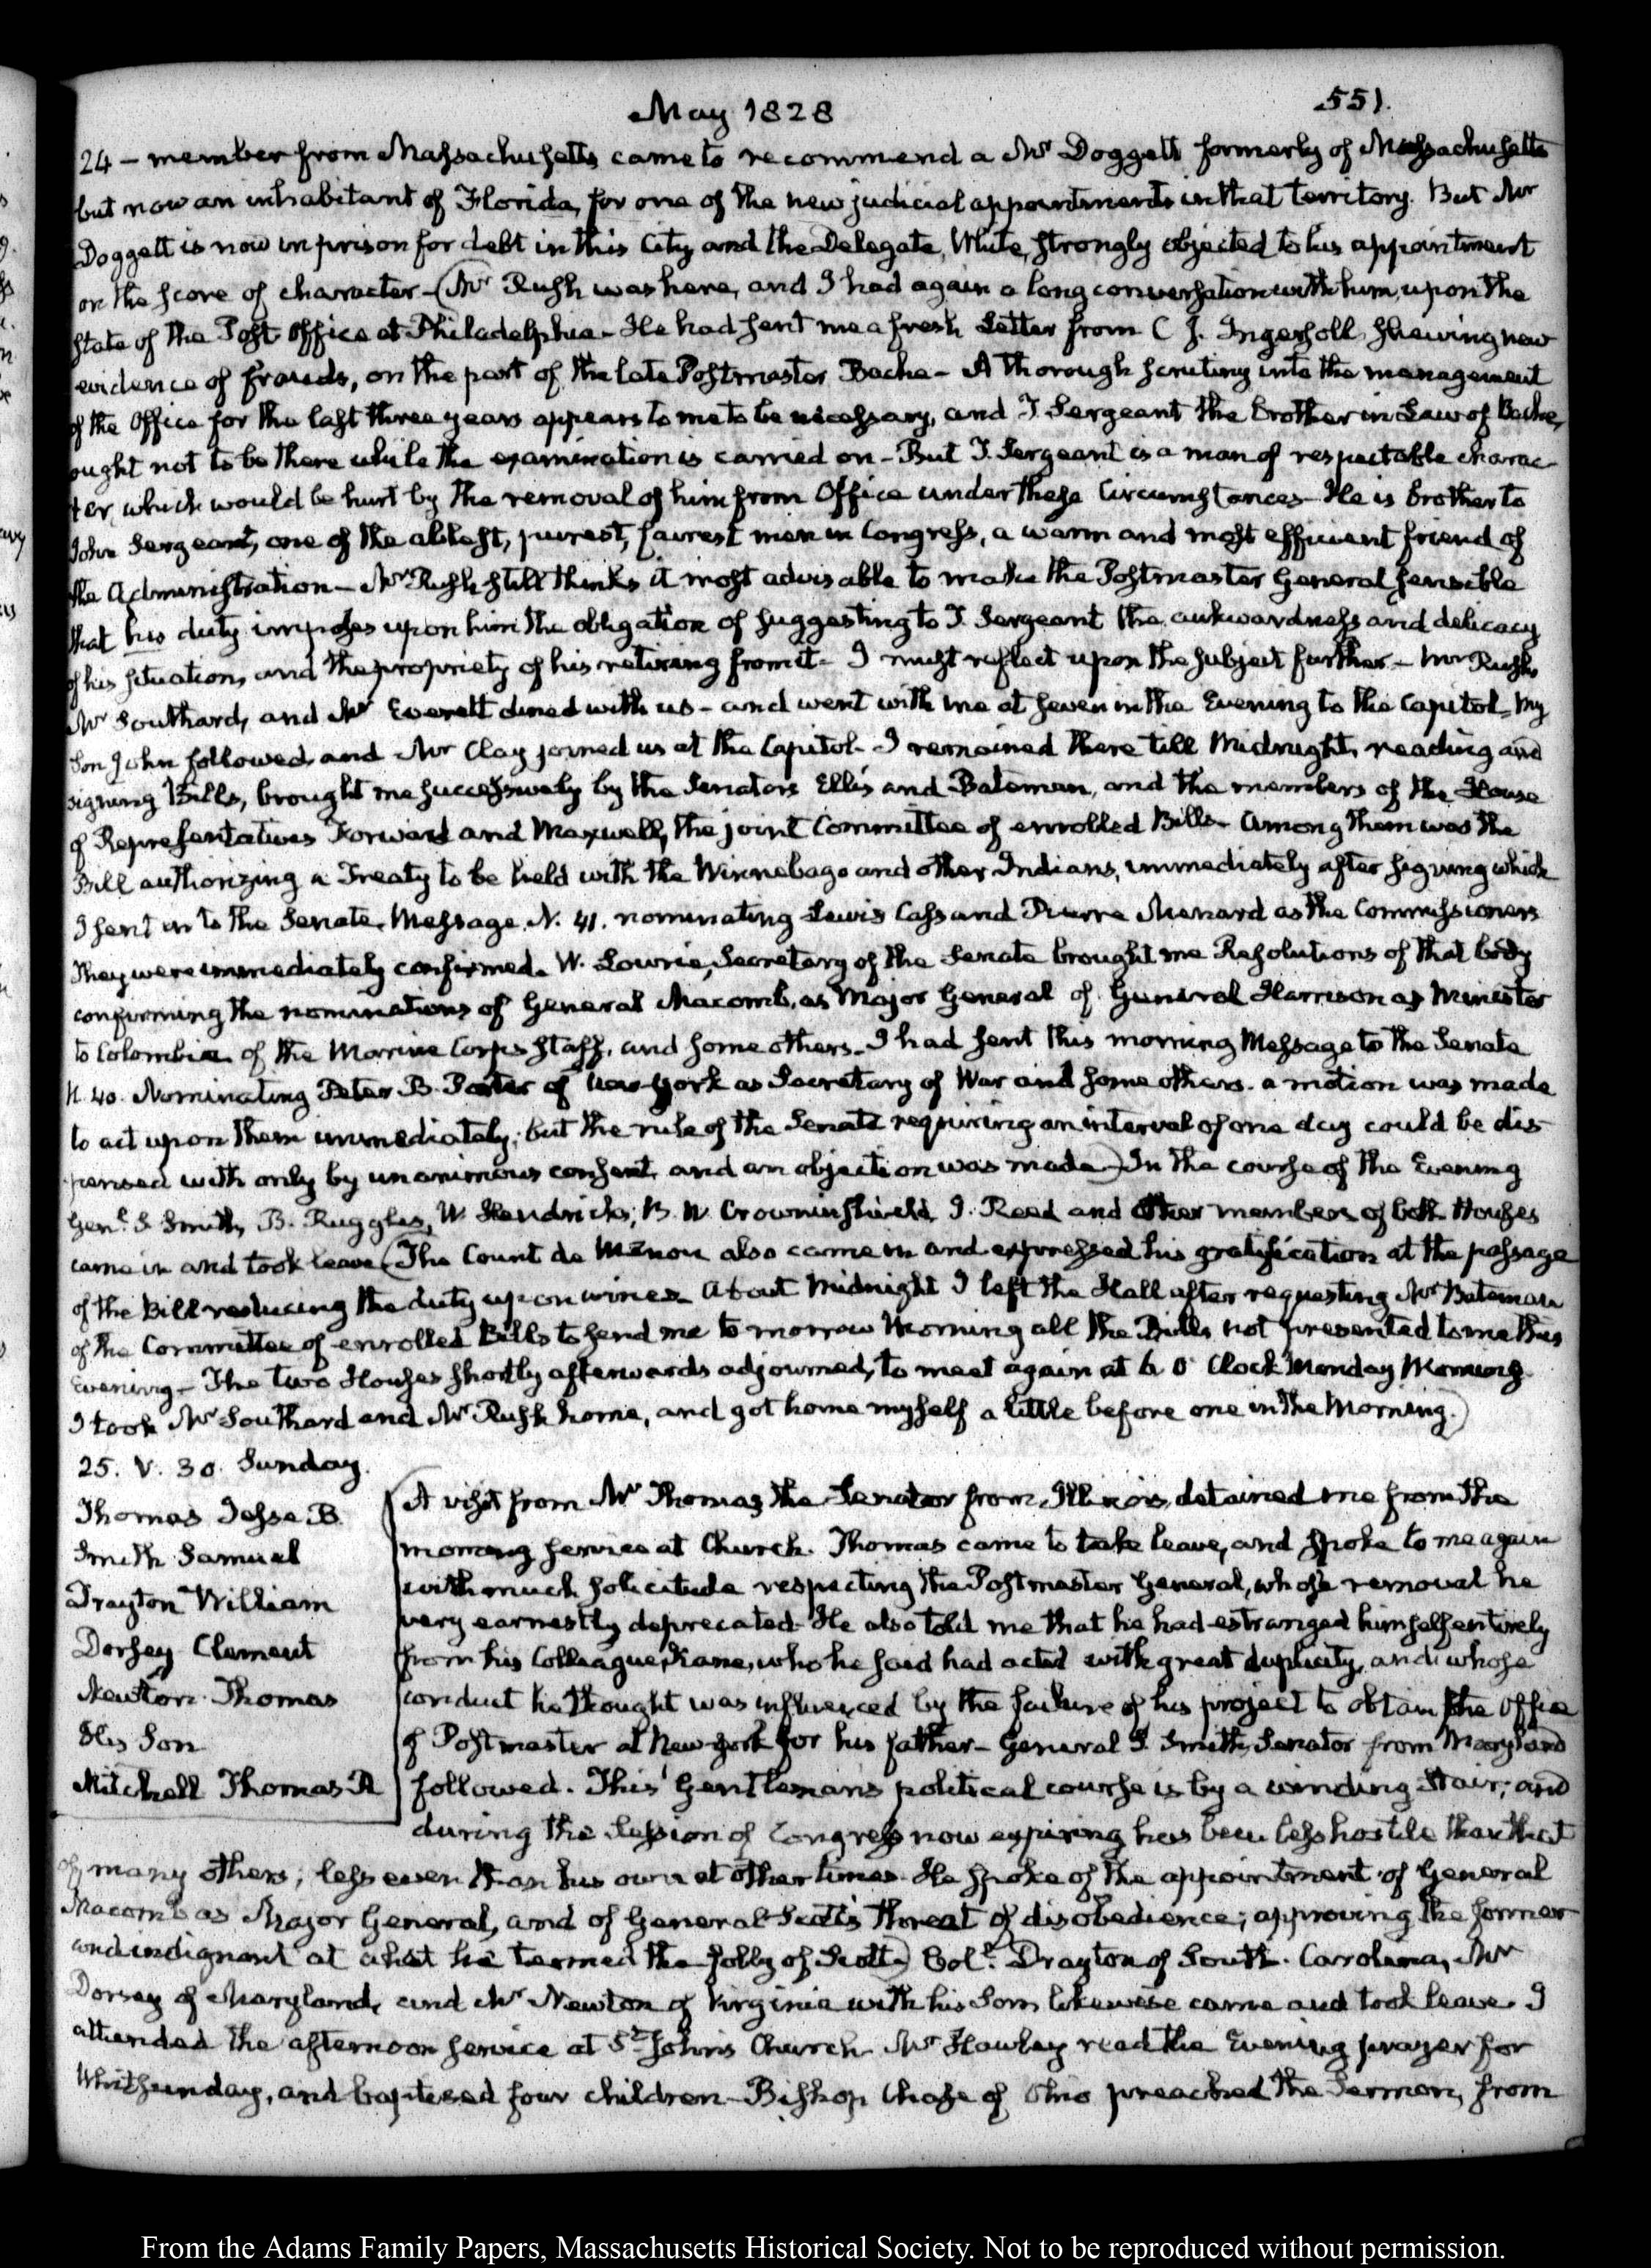 May 1828
551.
24 – member from Massachusetts came to recommend a Mr Doggett formerly of Massachusetts
but now an inhabitant of Florida, for one of the new judicial appointments in that territory. But Mr
Doggett is now in prison for debt in this City and the Delegate, White, strongly objected to his appointment
on the score of character – (Mr Rush was here, and I had again a long conversation with him, upon the
state of the Post Office at Philadelphia – He had sent me a fresh Letter from C J. Ingersoll, shewing new
evidence of frauds, on the part of the late Postmaster Bache – A thorough scrutiny into the management
of the Office for the last three years appears to me to be necessary, and T Sergeant the Brother in Law of Bache,
ought not to be there while the examination is carried on – But T. Sergeant is a man of respectable charac-
ter, which would be hurt by the removal of him from Office under these circumstances – He is brother to
John Sergeant, one of the ablest, purest, fairest men in Congress, a warm and most efficient friend of
the Administration – Mr Rush still thinks it most advisable to make the Postmaster General sensible
that his duty imposes upon him the obligation of suggesting to T Sergeant the awkwardness and delicacy
of his situation, and the propriety of his retiring from it – I must reflect upon the subject further – Mr Rush,
Mr Southard, and Mr Everett dined with us – and went with me at seven in the Evening to the Capitol – My
Son John followed, and Mr Clay joined us at the Capitol – I remained there till Midnight, reading and
signing Bills, brought me successively by the Senators Ellis and Bateman, and the members of the House
of Representatives Forward and Maxwell, the joint Committee of enrolled Bills – Among them was the
Bill authorizing a Treaty to be held with the Winnebago and other Indians, immediately after signing which
I sent in to the Senate, Message N. 41. nominating Lewis Cass and Pierre Menard as the Commissioners
They were immediately confirmed. W. Lowrie, Secretary of the Senate brought me Resolutions of that body
confirming the nominations of General Macomb, as Major General of General Harrison as Minister
to Colombia of the Marine Corps Staff, and some others – I had sent this morning Message to the Senate
N. 40. Nominating Peter B. Porter of New-York as Secretary of War and some others. a motion was made
to act upon them immediately; but the rule of the Senate requiring an interval of one day could be dis
pensed with only by unanimous consent, and an objection was made –) In the course of the Evening
Genl. S. Smith, B. Ruggles, W. Hendricks, B. W. Crowninshield, J. Reed and other members of both Houses
came in and took leave (The Count de Menou also came in and expressed his gratification at the passage
of the Bill reducing the duty upon wines – About Midnight I left the Hall after requesting Mr Bateman
of the Committee of enrolled Bills to send me to morrow Morning all the Bills, not presented to me this
Evening – The two Houses shortly afterwards adjourned, to meet again at 6. O' Clock Monday Morning.
I took Mr Southard and Mr Rush home, and got home myself a little before one in the Morning.)
25. V. 30. Sunday.
Thomas Jesse B.
Smith Samuel
Drayton William
Dorsey Clement
Newton Thomas
His Son
Mitchell Thomas R
(A visit from Mr Thomas, the Senator from Illinois, detained me from the
morning service at Church. Thomas came to take leave, and spoke to me again
with much solicitude respecting the Postmaster General, whose removal he
very earnestly deprecated – He also told me that he had estranged himself entirely
from his Colleague, Kane, who he said had acted with great duplicity, and whose
conduct he thought was influenced by the failure of his project to obtain the Office
of Postmaster at New-York for his father – General S. Smith, Senator from Maryland
followed. This Gentleman's political course is by a winding Stair; and
during the Session of Congress now expiring has been less hostile than that
of many others; less even than his own at other times – He spoke of the appointment of General
Macomb as Major General, and of General Scott's threat of disobedience; approving the former
and indignant at what he termed the folly of Scott.) Coll. Drayton of South-Carolina, Mr
Dorsey of Maryland, and Mr Newton of Virginia with his Son, likewise came and took leave. I
attended the afternoon service at St. John's Church – Mr Hawley read the Evening prayer for
Whitsunday, and baptised four children – Bishop Chase of Ohio preached the Sermon, from
From the Adams Family Papers, Massachusetts Historical Society. Not to be reproduced without permission.